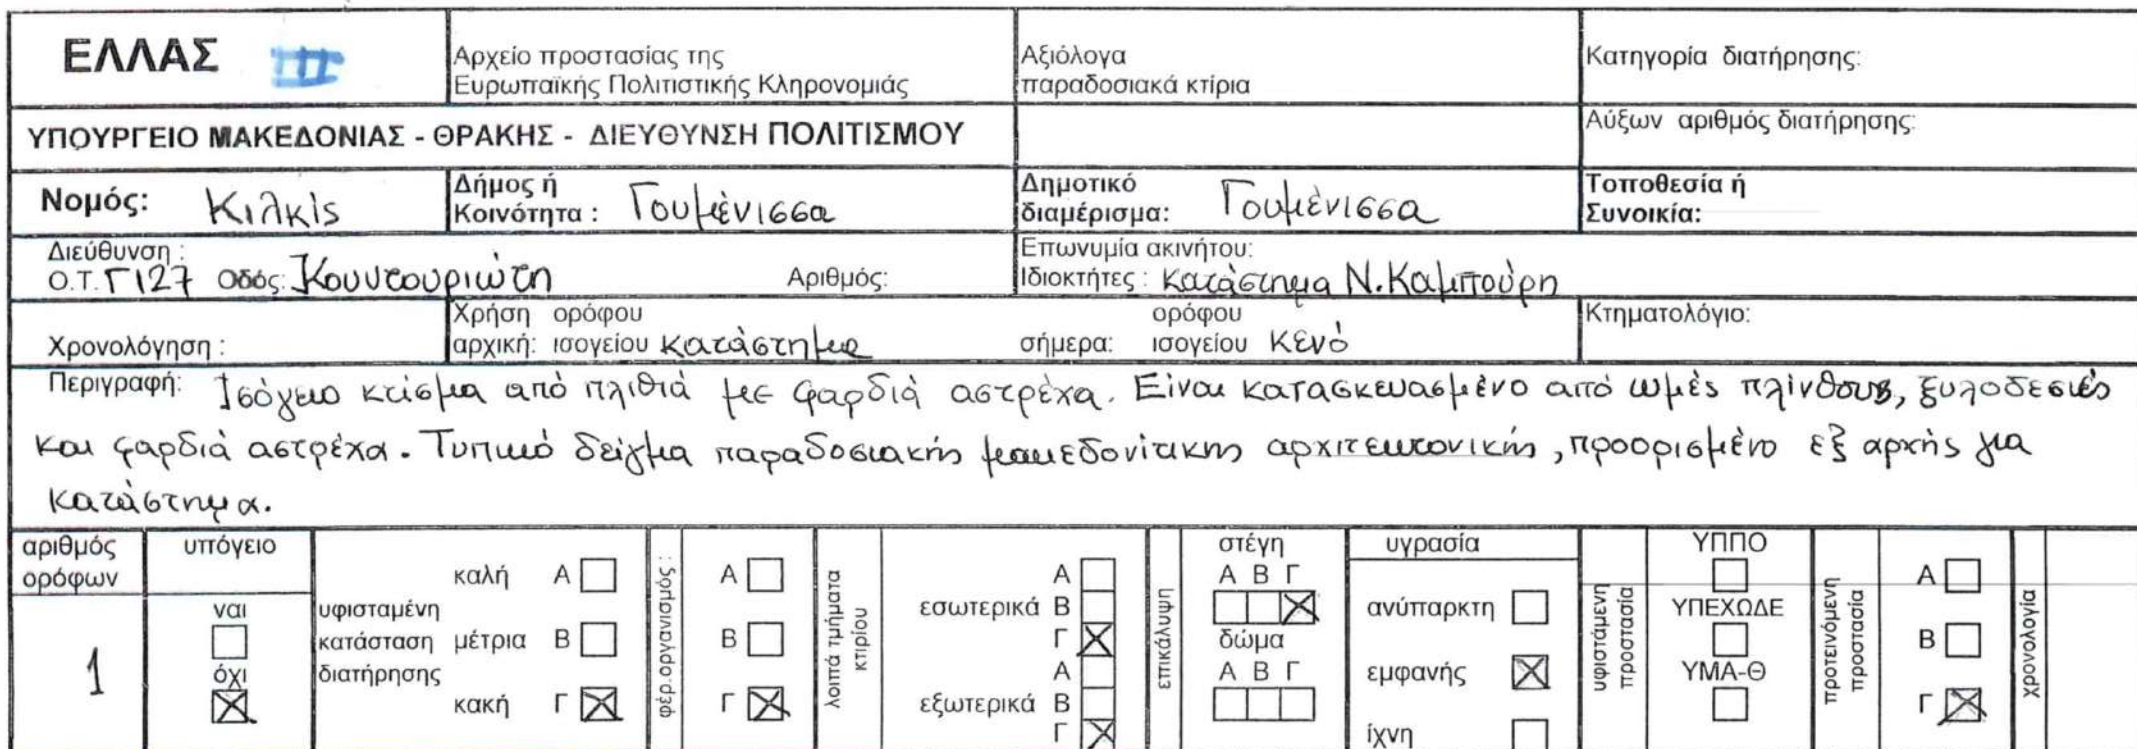 ΕΛΛΑΣ
Αρχείο προστασίας της
Ευρωπαϊκής Πολιτιστικής Κληρονομιάς
Αξιόλογα
παραδοσιακά κτίρια
Κατηγορία διατήρησης:
ΥΠΟΥΡΓΕΙΟ ΜΑΚΕΔΟΝΙΑΣ - ΘΡΑΚΗΣ - ΔΙΕΥΘΥΝΣΗ ΠΟΛΙΤΙΣΜΟΥ
Αύξων αριθμός διατήρησης:
Νομός: Κιλκίς
Δήμος ή
Κοινότητα : Γουμένισσα
Δημοτικό
διαμέρισμα: Γουμένισσα
Τοποθεσία ή
Συνοικία:
Διεύθυνση :
Ο.Τ. Γ127 Οδός: Κουντουριώτη Αριθμός:
Επωνυμία ακινήτου:
Ιδιοκτήτες : Κατάστημα Ν. Καμπούρη
Χρονολόγηση :
Χρήση ορόφου
αρχική: ισογείου Κατάστημα
ορόφου
σήμερα: ισογείου Κενό
Κτηματολόγιο:
Περιγραφή: Ισόγειο κτίσμα από πλιθιά με φαρδιά αστρέχα. Είναι κατασκευασμένο από ωμές πλίνθους, ξυλοδεσιές
και φαρδιά αστρέχα. Τυπικό δείγμα παραδοσιακής μακεδονίτικης αρχιτεκτονικής, προορισμένο εξ αρχής για
κατάστημα.
αριθμός
ορόφων
1
υπόγειο
ναι
όχι
υφισταμένη
κατάσταση
διατήρησης
καλή Α
μέτρια Β
κακή Γ
φέρ.οργανισμός :
Α
Β
Γ
λοιπά τμήματα
κτιρίου
εσωτερικά
Α
Β
Γ
εξωτερικά
Α
Β
Γ
επικάλυψη
στέγη
Α Β Γ
δώμα
Α Β Γ
υγρασία
ανύπαρκτη
εμφανής
ίχνη
υφιστάμενη
προστασία
ΥΠΠΟ
ΥΠΕΧΩΔΕ
ΥΜΑ-Θ
προτεινόμενη
προστασία
Α
Β
Γ
χρονολογία